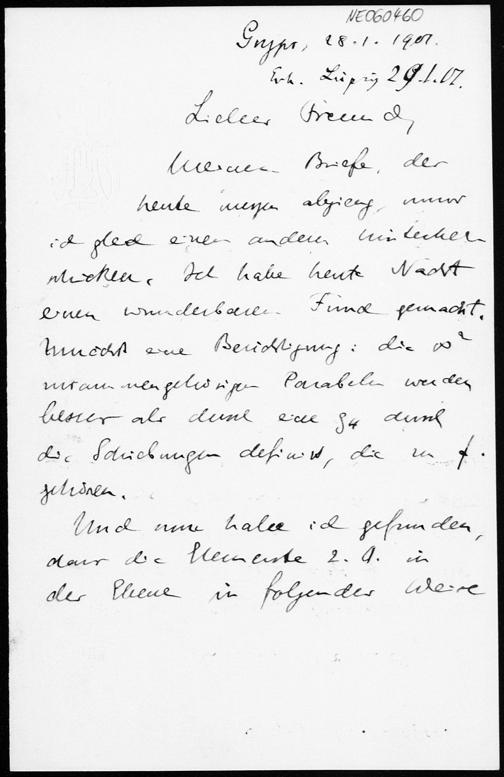 NE060460
Gryps, 28.1.1907.
Erh. Leipzig 29.1.07.
Lieber Freund,
Meinem Briefe, der
heute morgen abging, muss
ich gleich einen andern hinterher
schicken. Ich habe heute Nacht
einen wunderbaren Fund gemacht.
Zunächst eine Berichtigung: die ∞²
zusammengehörigen Parabeln werden
besser als durch eine g₄ durch
die Schiebungen definirt, die zu f.
gehören.
Und nun habe ich gefunden,
dass die Elemente 2. O. in
der Ebene in folgender Weise